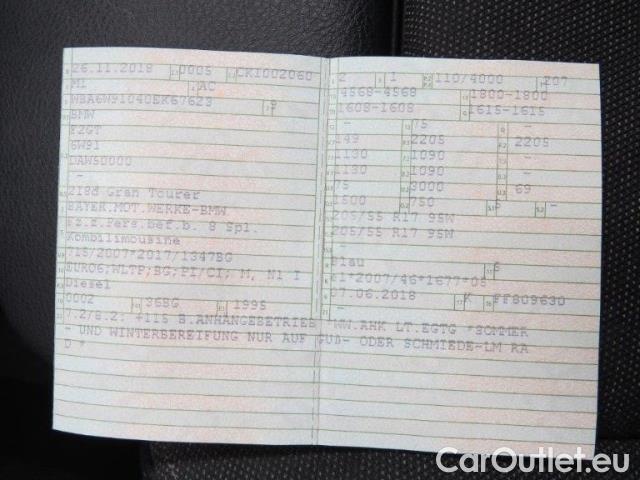 26.11.2018 0005 CKI002060
M1 AC
WBA6W91040EK67623 9
BMW
F2GT
6W91
DAW50000
-
218d Gran Tourer
BAYER.MOT.WERKE-BMW
Fz.z.Pers.bef.b. 8 Spl.
Kombilimousine
715/2007*2017/1347BG
EURO6;WLTP;BG;PI/CI; M, N1 I
Diesel
0002 36BG 1995
2 1 110/4000 207
4568-4568 1800-1800
1608-1608 1615-1615
- 75 - -
149 2205 2205
1130 1090 -
1130 1090 -
75 3000 69
1500 750 5 -
205/55 R17 95W
205/55 R17 95W
-
Blau 6
e1*2007/46*1677*05
07.06.2018 K FF809630
7.2/8.2: +115 B.ANHÄNGEBETRIEB *WW.AHK LT.EGTG *SOMMER
- UND WINTERBEREIFUNG NUR AUF GUß- ODER SCHMIEDE-LM RA
D *
CarOutlet.eu